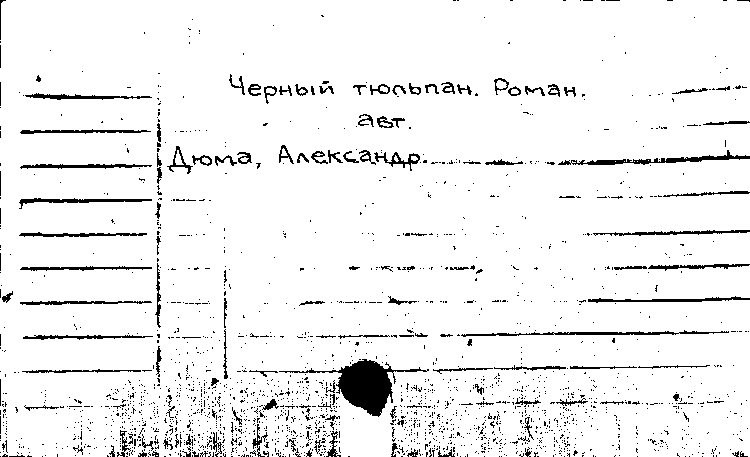 Черный тюльпан. Роман.
авт.
Дюма, Александр.